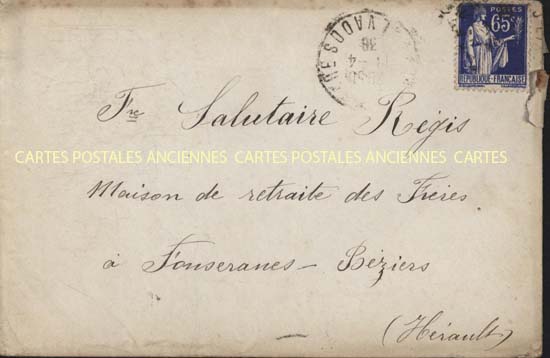 POSTES
65c
RÉPUBLIQUE-FRANÇAISE
Fre Salutaire Régis
CARTES POSTALES ANCIENNES CARTES POSTALES ANCIENNES CARTES
Maison de retraite des Frères
à Fonseranes - Béziers
(Hérault)